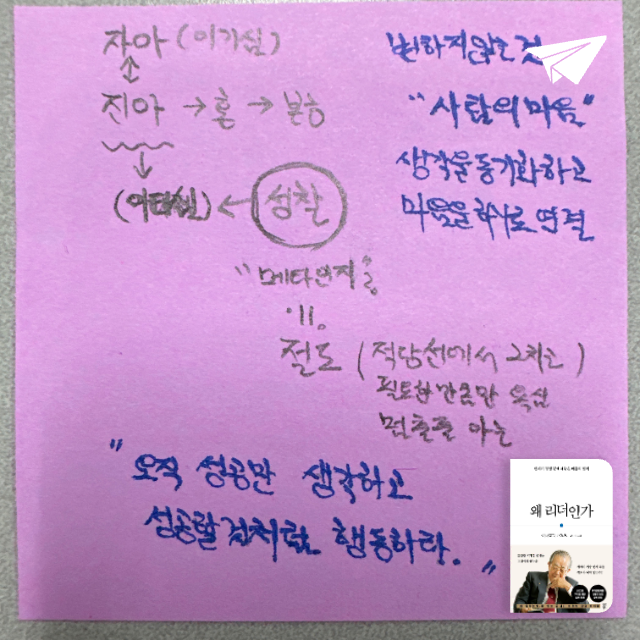 자아 (이기심)
↕
진아 → 혼 → 본능
↓
(이타심) ← 성찰
"메타인지?
"="
절도 (적당선에서 그치고)
필요한 만큼만 욕심
멈출줄 아는
변하지 않는 것
"사람의 마음"
생각을 동기화하고
마음을 하나로 연결
"오직 성공만 생각하고
성공할 것처럼 행동하라."
왜 리더인가